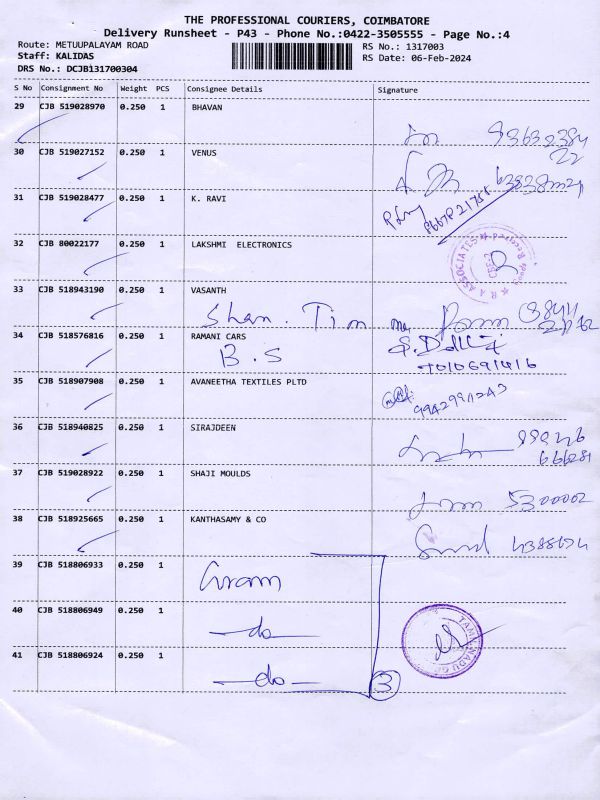 THE PROFESSIONAL COURIERS, COIMBATORE
Delivery Runsheet - P43 - Phone No.:0422-3505555 - Page No.:4
Route: METUUPALAYAM ROAD RS No.: 1317003
Staff: KALIDAS RS Date: 06-Feb-2024
DRS No.: DCJB131700304
S No Consignment No Weight PCS Consignee Details Signature
29 CJB 519028970 0.250 1 BHAVAN
30 CJB 519027152 0.250 1 VENUS
31 CJB 519028477 0.250 1 K. RAVI
32 CJB 80022177 0.250 1 LAKSHMI ELECTRONICS
33 CJB 518943190 0.250 1 VASANTH
Shan Tim
34 CJB 518576816 0.250 1 RAMANI CARS
B.S
35 CJB 518907908 0.250 1 AVANEETHA TEXTILES PLTD
36 CJB 518940825 0.250 1 SIRAJDEEN
37 CJB 519028922 0.250 1 SHAJI MOULDS
5300002
38 CJB 518925665 0.250 1 KANTHASAMY & CO
39 CJB 518806933 0.250 1
40 CJB 518806949 0.250 1 -do-
41 CJB 518806924 0.250 1 -do- 3